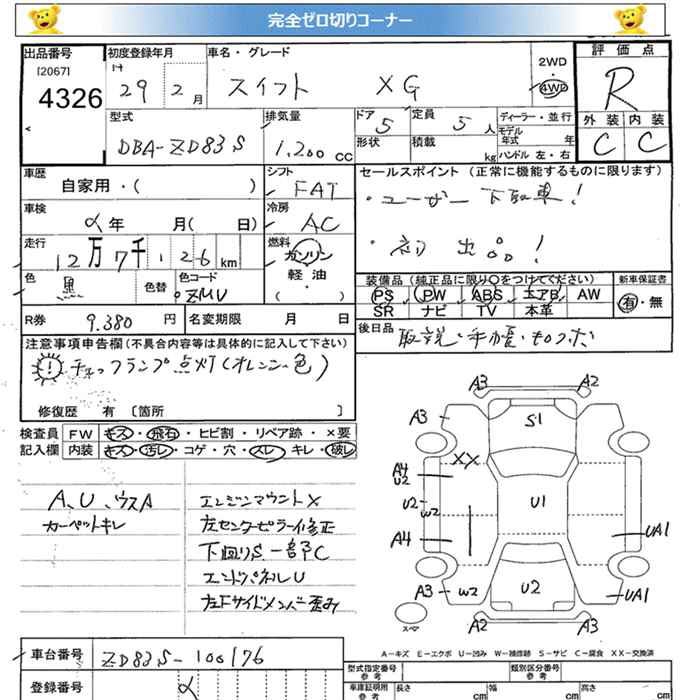 完全ゼロ切りコーナー
出品番号
[2067]
4326
初度登録年月
29 2月
車名・グレード
スイフト XG
2WD
4WD
評価点
R
外装 内装
C C
型式
DBA-ZD83S
排気量
1,200 cc
ドア
5
定員
5 人
形状
積載
kg
ディーラー・並行
モデル年式 年
ハンドル 左・右
車歴
自家用・( )
シフト
FAT
セールスポイント (正常に機能するものに限ります)
・ユーザー下取車!
・初出品!
車検
年 月( 日)
冷房
AC
走行
12万7千126km
燃料
ガソリン
軽・油
( )
色
黒
色替
色コード
ZMV
装備品 (純正品に限り○をつけてください)
PS PW ABS エアB AW
SR ナビ TV 本革
新車保証書
有・無
R券 9,380 円
名変期限 月 日
後日品
取説・手帳・
注意事項申告欄(不具合内容等は具体的に記入して下さい)
チェックランプ点灯(オレンジ色)
修復歴 有 〔箇所 〕
検査員記入欄
FW キズ・飛石・ヒビ割・リペア跡・×要
内装 キズ・汚レ・コゲ・穴・スレ・キレ・破レ
A、U、ウスA
カーペットキレ
エンジンマウントX
左センターピラー修正
下回りS 一部C
エンドパネルU
左Fサイドメンバー歪み
A3 A2
A3 S1 A3
XX
A4
U2
U2
W2
U1
A4
UA1
W2 U2 UA1
A2 A3
スペア
A-キズ E-エクボ U-凹み W-補修跡 S-サビ C-腐食 XX-交換済
車台番号 ZD83S-100176
登録番号
型式指定番号
参考
類別区分番号
参考
車庫証明用
参考
長さ cm
幅 cm
高さ cm